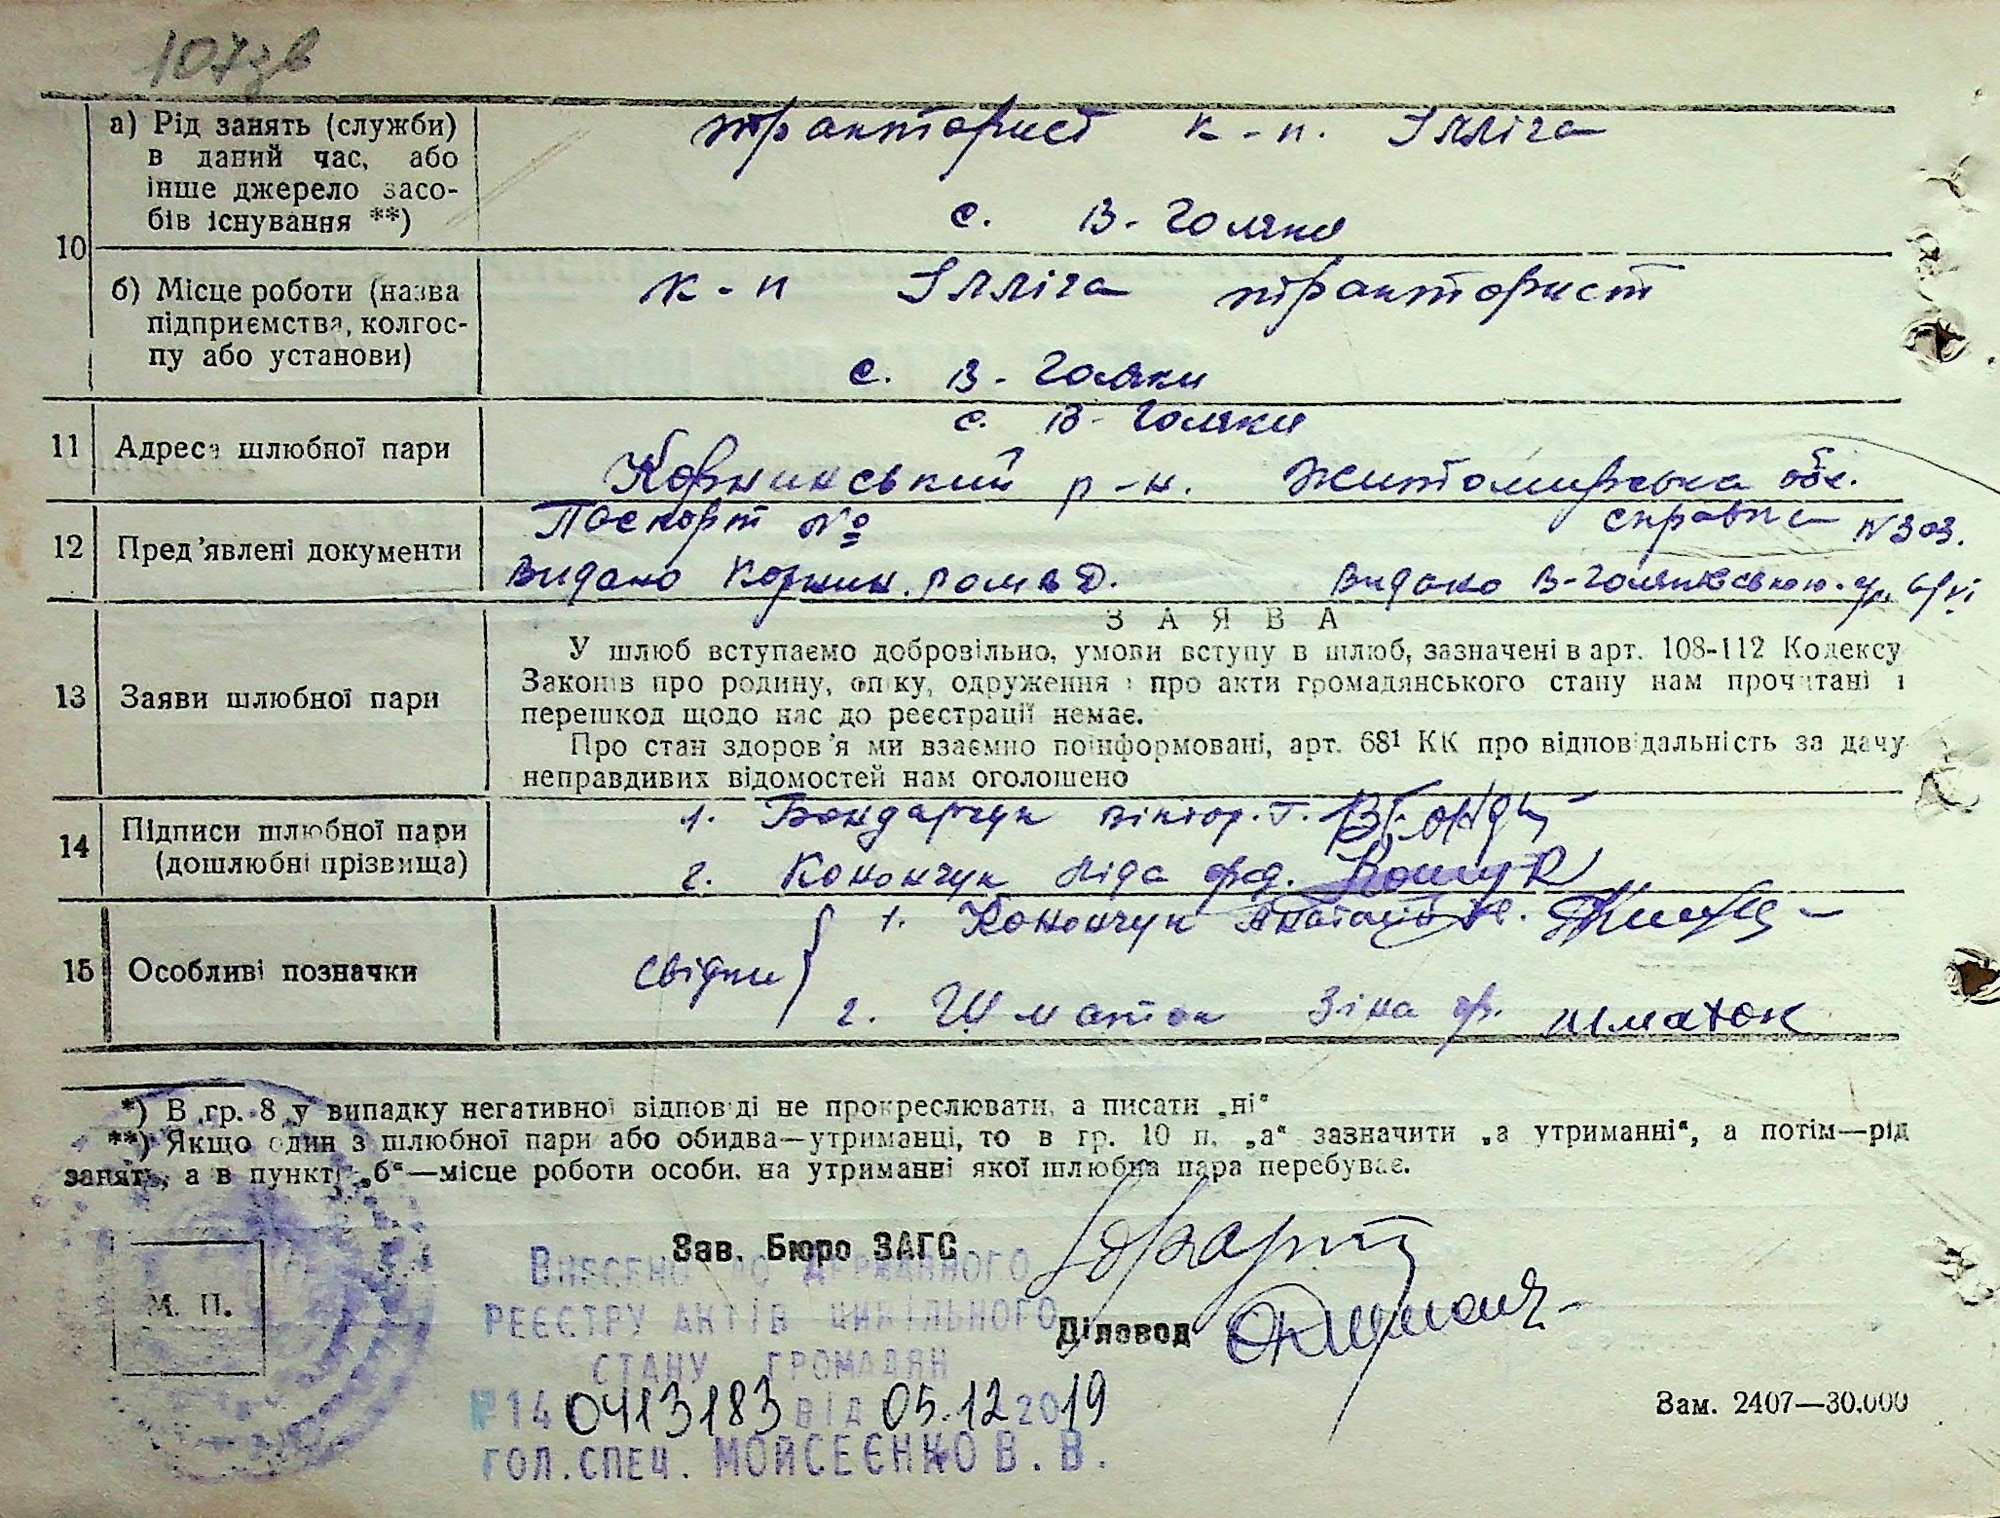 107 зв
а) Рід занять (служби) в даний час, або інше джерело засобів існування **)
тракторист к-п. Ілліча
с. В-Голяки
10
б) Місце роботи (назва підприємства, колгоспу або установи)
к-п Ілліча тракторист
с. В-Голяки
11 Адреса шлюбної пари
с. В-Голяки
Корнинський р-н. Житомирська обл.
12 Пред'явлені документи
Паспорт № справка №303.
Видано Корнин. РОМВД. Видано В-Голяківською
13 Заяви шлюбної пари
ЗАЯВА
У шлюб вступаємо добровільно, умови вступу в шлюб, зазначені в арт. 108-112 Кодексу
Законів про родину, опіку, одруження і про акти громадянського стану нам прочитані і
перешкод щодо нас до реєстрації немає.
Про стан здоров'я ми взаємно поінформовані, арт. 68¹ КК про відповідальність за дачу
неправдивих відомостей нам оголошено
14 Підписи шлюбної пари (дошлюбні прізвища)
1. Бондарчук Віктор. Г.
2. Конончук Ліда фед.
15 Особливі позначки
свідки
1. Конончук
2. Шматок Зіна ф. Шматок
*) В гр. 8 у випадку негативної відповіді не прокреслювати, а писати „ні“
**) Якщо один з шлюбної пари або обидва—утриманці, то в гр. 10 п. „а“ зазначити „а утриманні“, а потім—рід
занять, а в пункті „б“—місце роботи особи, на утриманні якої шлюбна пара перебуває.
Зав. Бюро ЗАГС
Внесено до Державного
реєстру актів цивільного
Діловод
стану громадян
М. П.
№ 14 0413183 від 05.12 2019
Зам. 2407—30.000
гол. спец. Мойсеєнко В. В.